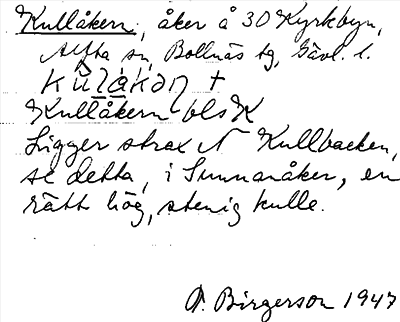 Kullåkern, åker å 30 Kyrkbyn,
Alfta sn, Bollnäs tg, Gävl. l.
kùlákən +
Kullåkern bls K
Ligger strax N Kullbacken,
se detta, i Sunnanåker, en
rätt hög, stenig kulle.
Birgerson 1947